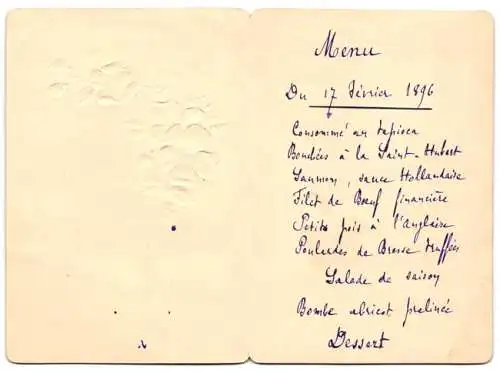 Menu
Du 17 Février 1896
Consommé au tapioca
Bouchées à la Saint-Hubert
Saumon, sauce Hollandaise
Filet de Bœuf financière
Petits pois à l'anglaise
Poulardes de Bresse truffées
Salade de saison
Bombe abricot pralinée
Dessert